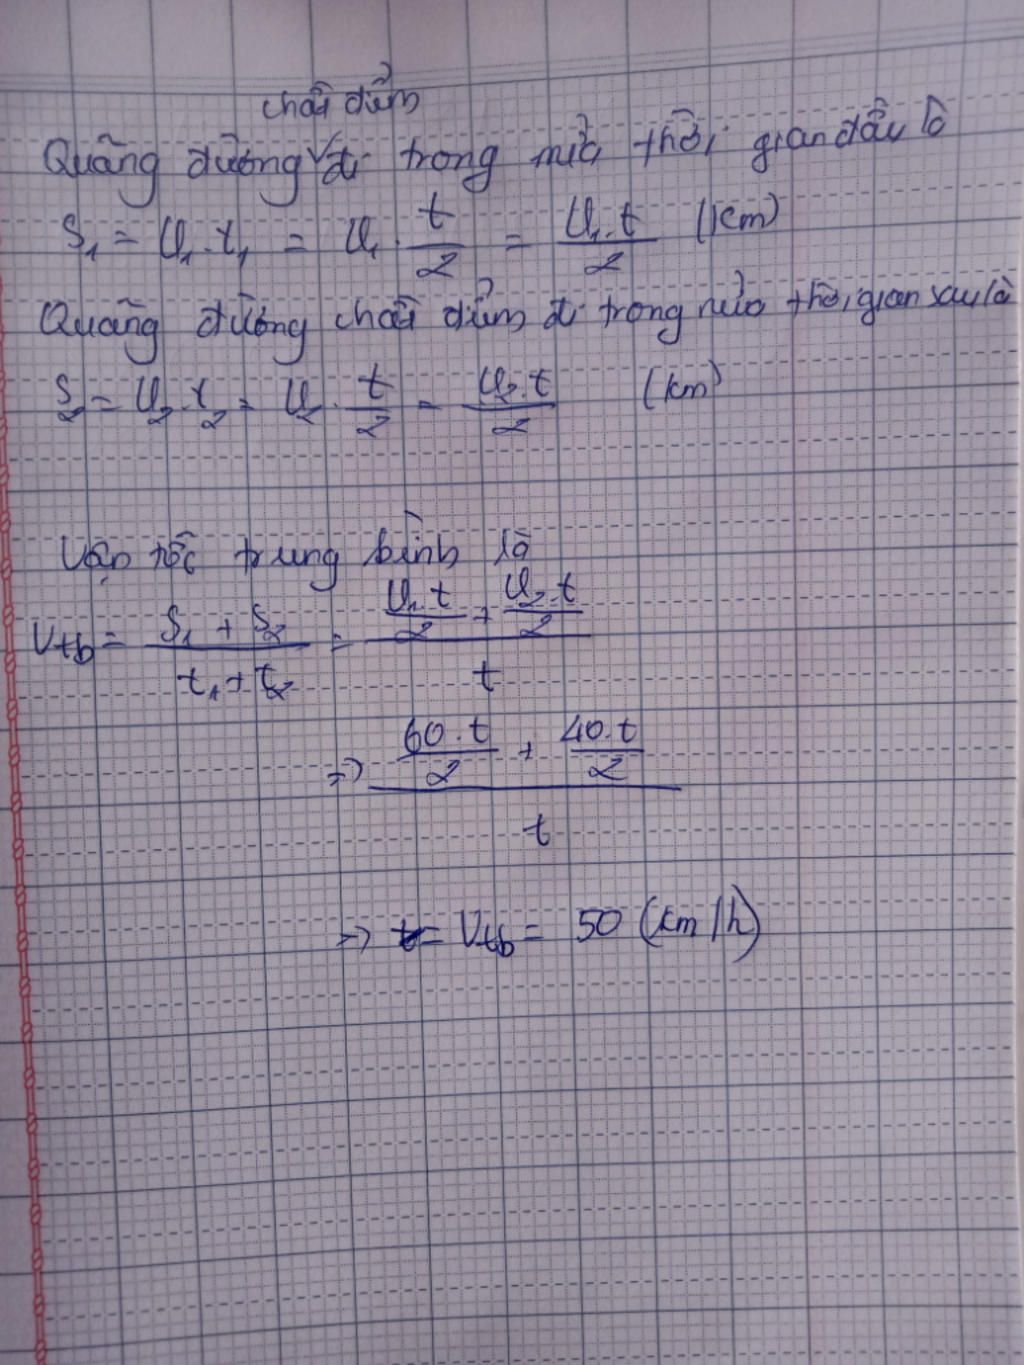 chất điểm
Quãng đường đi trong nửa thời gian đầu là
S₁ = v₁.t₁ = v₁ . t/2 = v₁.t/2 (km)
Quãng đường chất điểm đi trong nửa thời gian sau là
S₂ = v₂.t₂ = v₂ . t/2 = v₂.t/2 (km)
Vận tốc trung bình là
Vtb = (S₁ + S₂)/(t₁ + t₂) = (v₁.t/2 + v₂.t/2)/t
=> (60.t/2 + 40.t/2)/t
=> = Vtb = 50 (km/h)